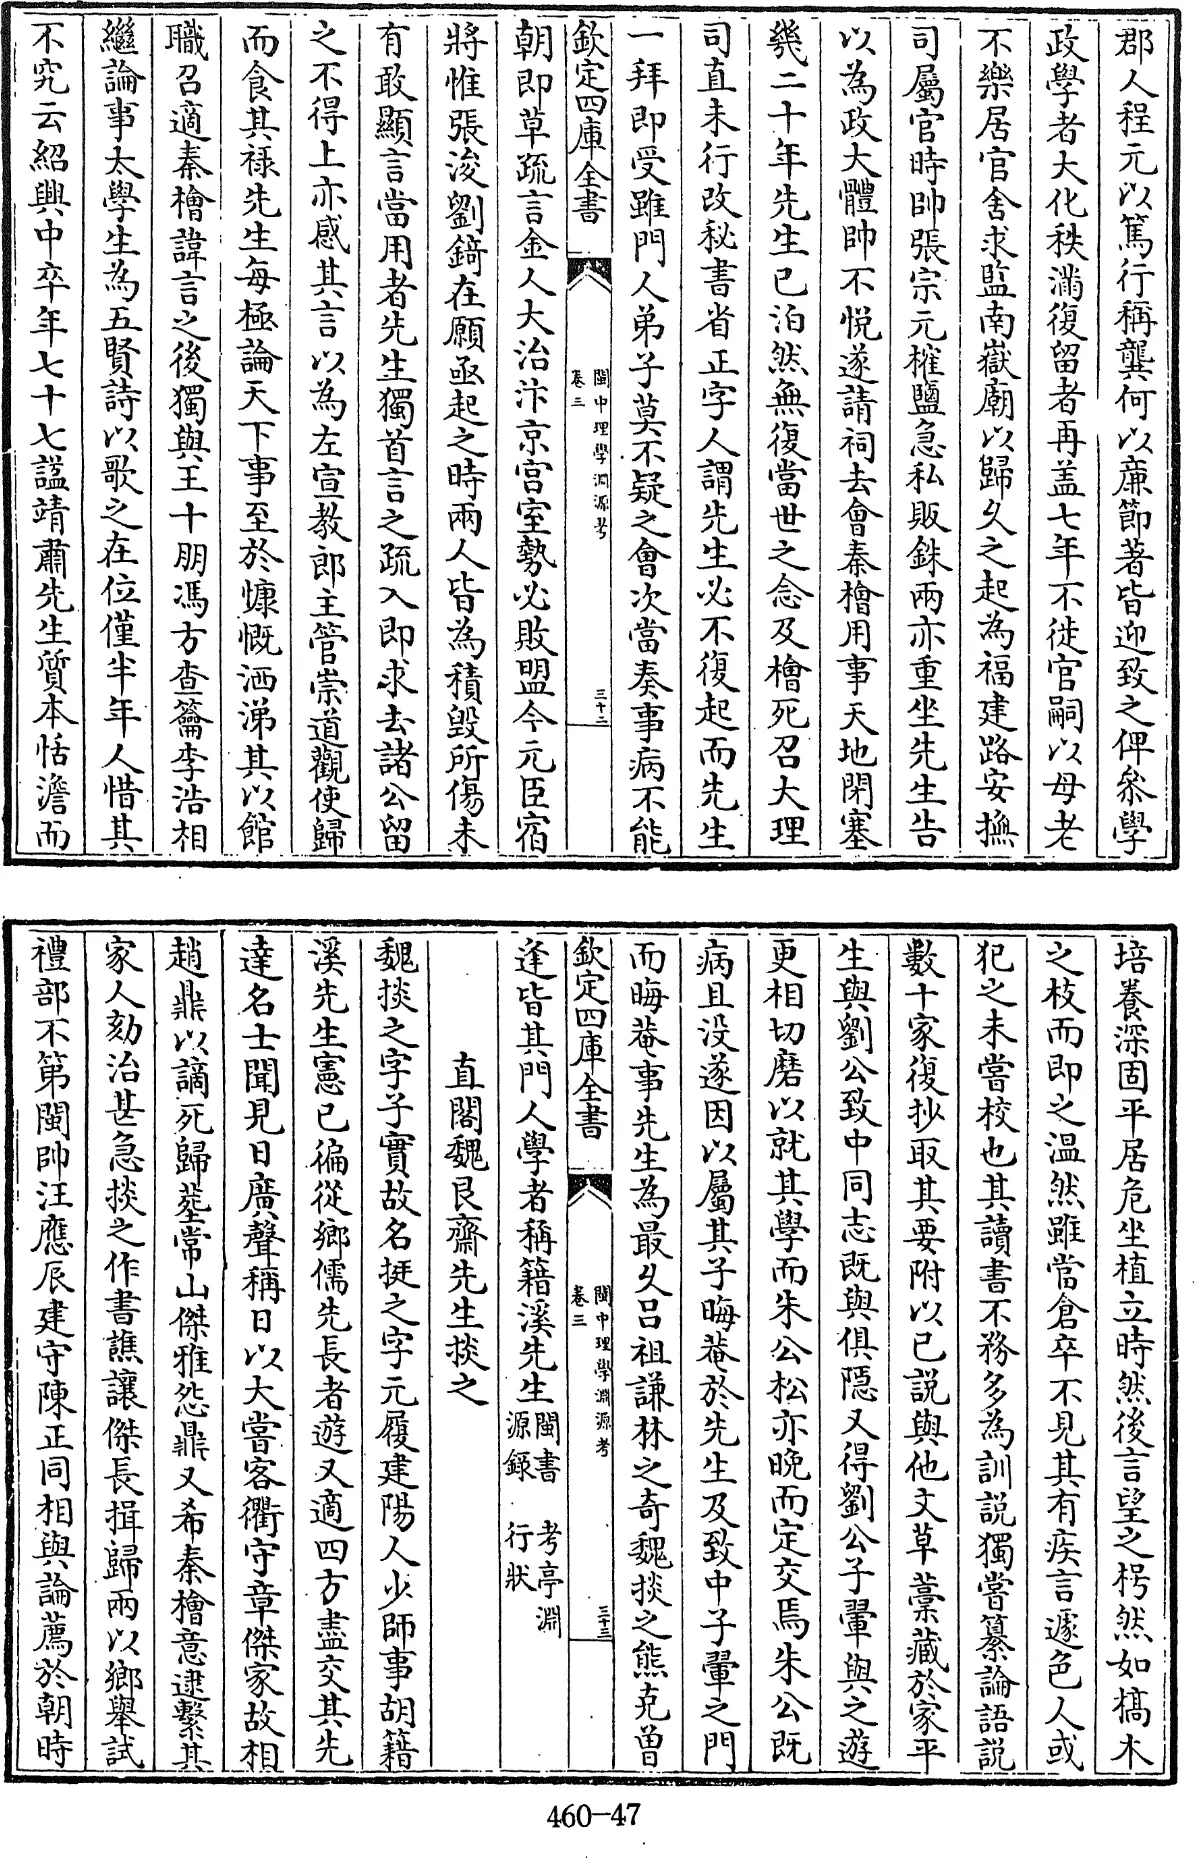 郡人程元以篤行稱龔何以亷節著皆迎致之俾叅學
政學者大化秩滿復留者再盖七年不徙官嗣以母老
不樂居官舍求監南嶽廟以歸久之起為福建路安撫
司屬官時帥張宗元榷鹽急私販銖兩亦重坐先生告
以為政大體帥不悦遂請祠去會秦檜用事天地閉塞
幾二十年先生已泊然無復當世之念及檜死召大理
司直未行改秘書省正字人謂先生必不復起而先生
一拜即受雖門人弟子莫不疑之會次當奏事病不能
欽定四庫全書
閩中理學淵源考
卷三
三十二
朝即草疏言金人大治汴京宫室勢必敗盟今元臣宿
將惟張浚劉錡在願亟起之時兩人皆為積毀所傷未
有敢顯言當用者先生獨首言之疏入即求去諸公留
之不得上亦感其言以為左宣教郎主管崇道觀使歸
而食其禄先生每極論天下事至於慷慨洒涕其以館
職召適秦檜諱言之後獨與王十朋馮方查籥李浩相
繼論事太學生為五賢詩以歌之在位僅半年人惜其
不究云紹興中卒年七十七諡靖肅先生質本恬澹而
培養深固平居危坐植立時然後言望之枵然如槁木
之枝而即之温然雖當倉卒不見其有疾言遽色人或
犯之未嘗校也其讀書不務多為訓説獨嘗纂論語説
數十家復抄取其要附以已説與他文草藁藏於家平
生與劉公致中同志既與俱隱又得劉公子翬與之遊
更相切磨以就其學而朱公松亦晚而定交焉朱公既
病且没遂因以屬其子晦菴於先生及致中子翬之門
而晦菴事先生為最久吕祖謙林之奇魏掞之熊克曾
欽定四庫全書
閩中理學淵源考
卷三
三十三
逢皆其門人學者稱籍溪先生閩書 考亭淵
源録 行狀
直閣魏艮齋先生掞之
魏掞之字子實故名挺之字元履建陽人少師事胡籍
溪先生憲已徧從鄉儒先長者遊又適四方盡交其先
達名士聞見日廣聲稱日以大嘗客衢守章傑家故相
趙鼎以謫死歸塟常山傑雅怨鼎又希秦檜意逮繫其
家人劾治甚急掞之作書譙讓傑長揖歸兩以鄉舉試
禮部不第閩帥汪應辰建守陳正同相與論薦於朝時
460-47